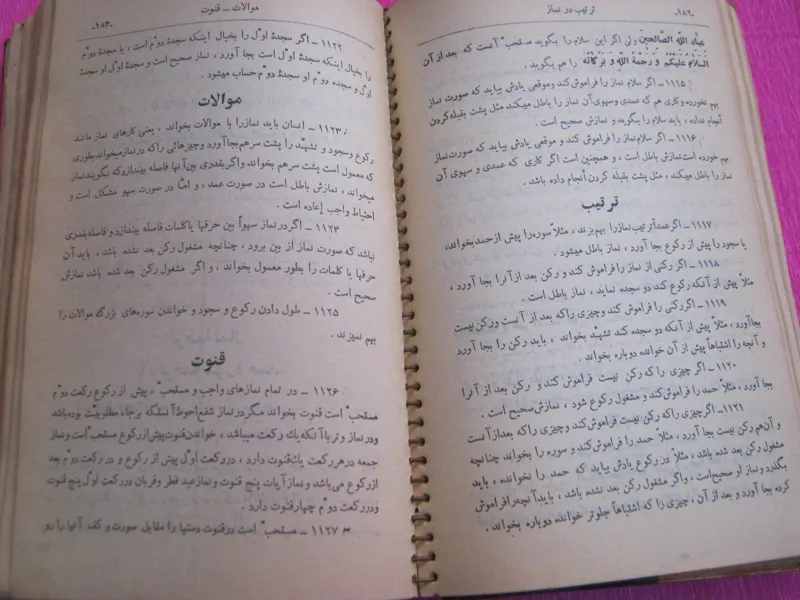 -۱۸۲-
ترتیب در نماز
عباد الله الصالحین ولی اگر این سلام را بگوید مستحب ّ آنست که بعد از آن
السلام علیکم و رحمة الله و برکاته را هم بگوید .
۱۱۱۵ ـ اگر سلام نماز را فراموش کند و موقعی یادش بیاید که صورت نماز
بهم نخورده و کاری هم که عمدی و سهوی آن نماز را باطل میکند مثل پشت بقبله کردن
انجام نداده ، باید سلام را بگوید و نمازش صحیح است .
۱۱۱۶ ـ اگر سلام نماز را فراموش کند و موقعی یادش بیاید که صورت نماز
بهم خورده است نمازش باطل است ، و همچنین است اگر کاری که عمدی و سهوی آن
نماز را باطل میکند ، مثل پشت بقبله کردن انجام داده باشد .
ترتیب
۱۱۱۷ ـ اگر عمداً ترتیب نماز را بهم بزند ، مثلاً سوره را پیش از حمد بخواند ،
یا سجود را پیش از رکوع بجا آورد ، نماز باطل میشود .
۱۱۱۸ ـ اگر رکنی از نماز را فراموش کند و رکن بعد از آنرا بجا آورد ،
مثلاً پیش از آنکه رکوع کند دو سجده نماید ، نماز باطل است .
۱۱۱۹ ـ اگر رکنی را فراموش کند و چیزی را که بعد از آنست و رکن نیست
بجا آورد ، مثلاً پیش از آنکه دو سجده کند تشهّد بخواند ، باید رکن را بجا آورد
و آنچه را اشتباهاً پیش از آن خوانده دوباره بخواند .
۱۱۲۰ ـ اگر چیزی را که رکن نیست فراموش کند و رکن بعد از آنرا
بجا آورد ، مثلاً حمد را فراموش کند و مشغول رکوع شود ، نمازش صحیح است .
۱۱۲۱ ـ اگر چیزی را که رکن نیست فراموش کند و چیزی را که بعد از آنست
و آن هم رکن نیست بجا آورد ، مثلاً حمد را فراموش کند و سوره را بخواند چنانچه
مشغول رکن بعد شده باشد ، مثلاً در رکوع یادش بیاید که حمد را نخوانده ، باید
بگذرد و نماز او صحیح است ، و اگر مشغول رکن بعد نشده باشد ، باید آنچه را فراموش
کرده بجا آورد و بعد از آن ، چیزی را که اشتباهاً جلوتر خوانده دوباره بخواند .
موالات ـ قنوت
-۱۸۳-
۱۱۲۲ ـ اگر سجدهٔ او ّل را بخیال اینکه سجدهٔ دو ّم است ، یا سجدهٔ دو ّم
را بخیال اینکه سجدهٔ او ّل است بجا آورد ، نماز صحیح است و سجدهٔ او ّل او سجدهٔ
او ّل و سجده دو ّم او سجدهٔ دو ّم حساب میشود .
موالات
۱۱۲۳ ـ انسان باید نماز را با موالات بخواند ، یعنی کارهای نماز مانند
رکوع و سجود و تشهّد را پشت سر هم بجا آورد و چیزهائی را که در نماز میخواند بطوری
که معمول است پشت سر هم بخواند و اگر بقدری بین آنها فاصله بیندازد که نگویند نماز
میخواند ، نمازش باطل است در صورت عمد ، و امّا در صورت سهو مشکل است و
احتیاط واجب إعاده است .
۱۱۲۴ ـ اگر در نماز سهواً بین حرفها یا کلمات فاصله بیندازد و فاصله بقدری
نباشد که صورت نماز از بین برود ، چنانچه مشغول رکن بعد نشده باشد ، باید آن
حرفها یا کلمات را بطور معمول بخواند ، و اگر مشغول رکن بعد شده باشد نمازش
صحیح است .
۱۱۲۵ ـ طول دادن رکوع و سجود و خواندن سوره‌های بزرگ موالات را
بهم نمیزند .
قنوت
۱۱۲۶ ـ در تمام نمازهای واجب و مستحب ّ ، پیش از رکوع رکعت دو ّم
مستحب ّ است قنوت بخواند مگر در نماز شفع احوط آنستکه برجاء مطلوبیت بوده باشد
و در نماز وتر با آنکه یك رکعت میباشد ، خواندن قنوت پیش از رکوع مستحب ّ است و نماز
جمعه در هر رکعت یك قنوت دارد ، در رکعت او ّل پیش از رکوع و در رکعت دو ّم بعد
از رکوع می‌باشد و نماز آیات پنج قنوت و نماز عید فطر و قربان در رکعت او ّل پنج قنوت
و در رکعت دو ّم چهار قنوت دارد .
۱۱۲۷ ـ مستحب ّ است در قنوت دستها را مقابل صورت و کف آنها را رو